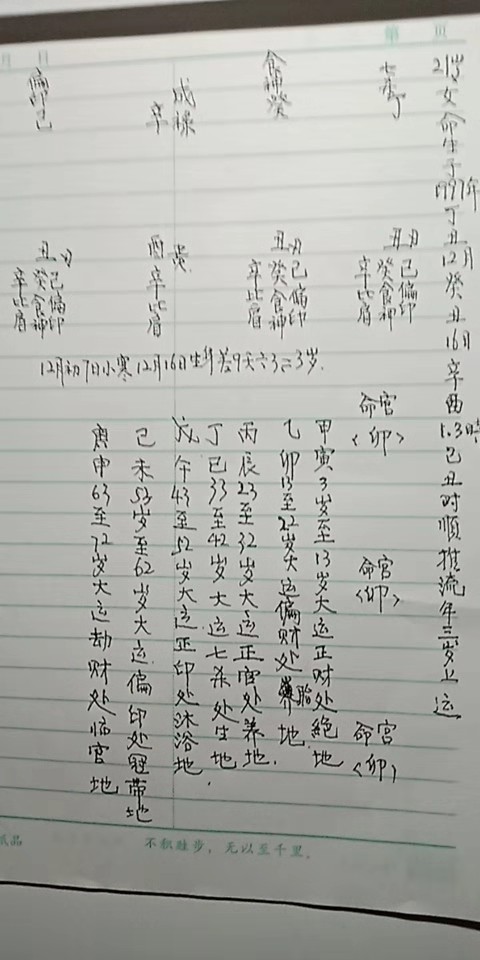 第 页
月 日
21岁女命生于1997年丁丑12月癸丑16日辛酉1.3時己丑时順推流年三岁上运
七杀丁
食神癸
戌禄
辛
偏印己
丑日
己偏印
癸食神
辛比肩
丑日
己偏印
癸食神
辛比肩
酉
辛比肩
丑日
己偏印
癸食神
辛比肩
12月初7日小寒12月16日生年差9天六3=3岁.
命宫
<卯>
命宫
<卯>
命宫
<卯>
甲寅3岁至13岁大运正财处絕地
乙卯13至22岁大运偏财处胎地.
丙辰23至32岁大运正官处养地.
丁巳33至42岁大运七杀处生地.
戊午43至52岁大运正印处沐浴地
己未53岁至62岁大运偏印处冠带地
庚申63至72岁大运劫财处临官地
纸品
不积跬步，无以至千里。